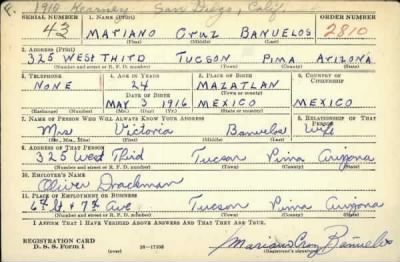 F. 1910 Kearney San Diego, Calif.
SERIAL NUMBER 1. NAME (Print) ORDER NUMBER
43 MARIANO CRUZ BANUELOS 2810
(First) (Middle) (Last)
2. ADDRESS (Print)
325 WEST THIRD TUCSON PIMA ARIZONA
(Number and street or R. F. D. number) (Town) (County) (State)
3. TELEPHONE 4. AGE IN YEARS 5. PLACE OF BIRTH 6. COUNTRY OF CITIZENSHIP
NONE 24 MAZATLAN
DATE OF BIRTH (Town or county)
MAY 3 1916 MEXICO MEXICO
(Exchange) (Number) (Mo.) (Day) (Yr.) (State or country)
7. NAME OF PERSON WHO WILL ALWAYS KNOW YOUR ADDRESS 8. RELATIONSHIP OF THAT PERSON
Mrs Victoria Banuelos Wife
(Mr., Mrs., Miss) (First) (Middle) (Last)
9. ADDRESS OF THAT PERSON
325 West Third Tucson Pima Arizona
(Number and street or R. F. D. number) (Town) (County) (State)
10. EMPLOYER'S NAME
Oliver Drachman
11. PLACE OF EMPLOYMENT OR BUSINESS
6th St & 7th Ave Tucson Pima Arizona
(Number and street or R. F. D. number) (Town) (County) (State)
I AFFIRM THAT I HAVE VERIFIED ABOVE ANSWERS AND THAT THEY ARE TRUE.
REGISTRATION CARD
D. S. S. Form 1 (over) Mariano Cruz Bañuelos
(Registrant's signature)